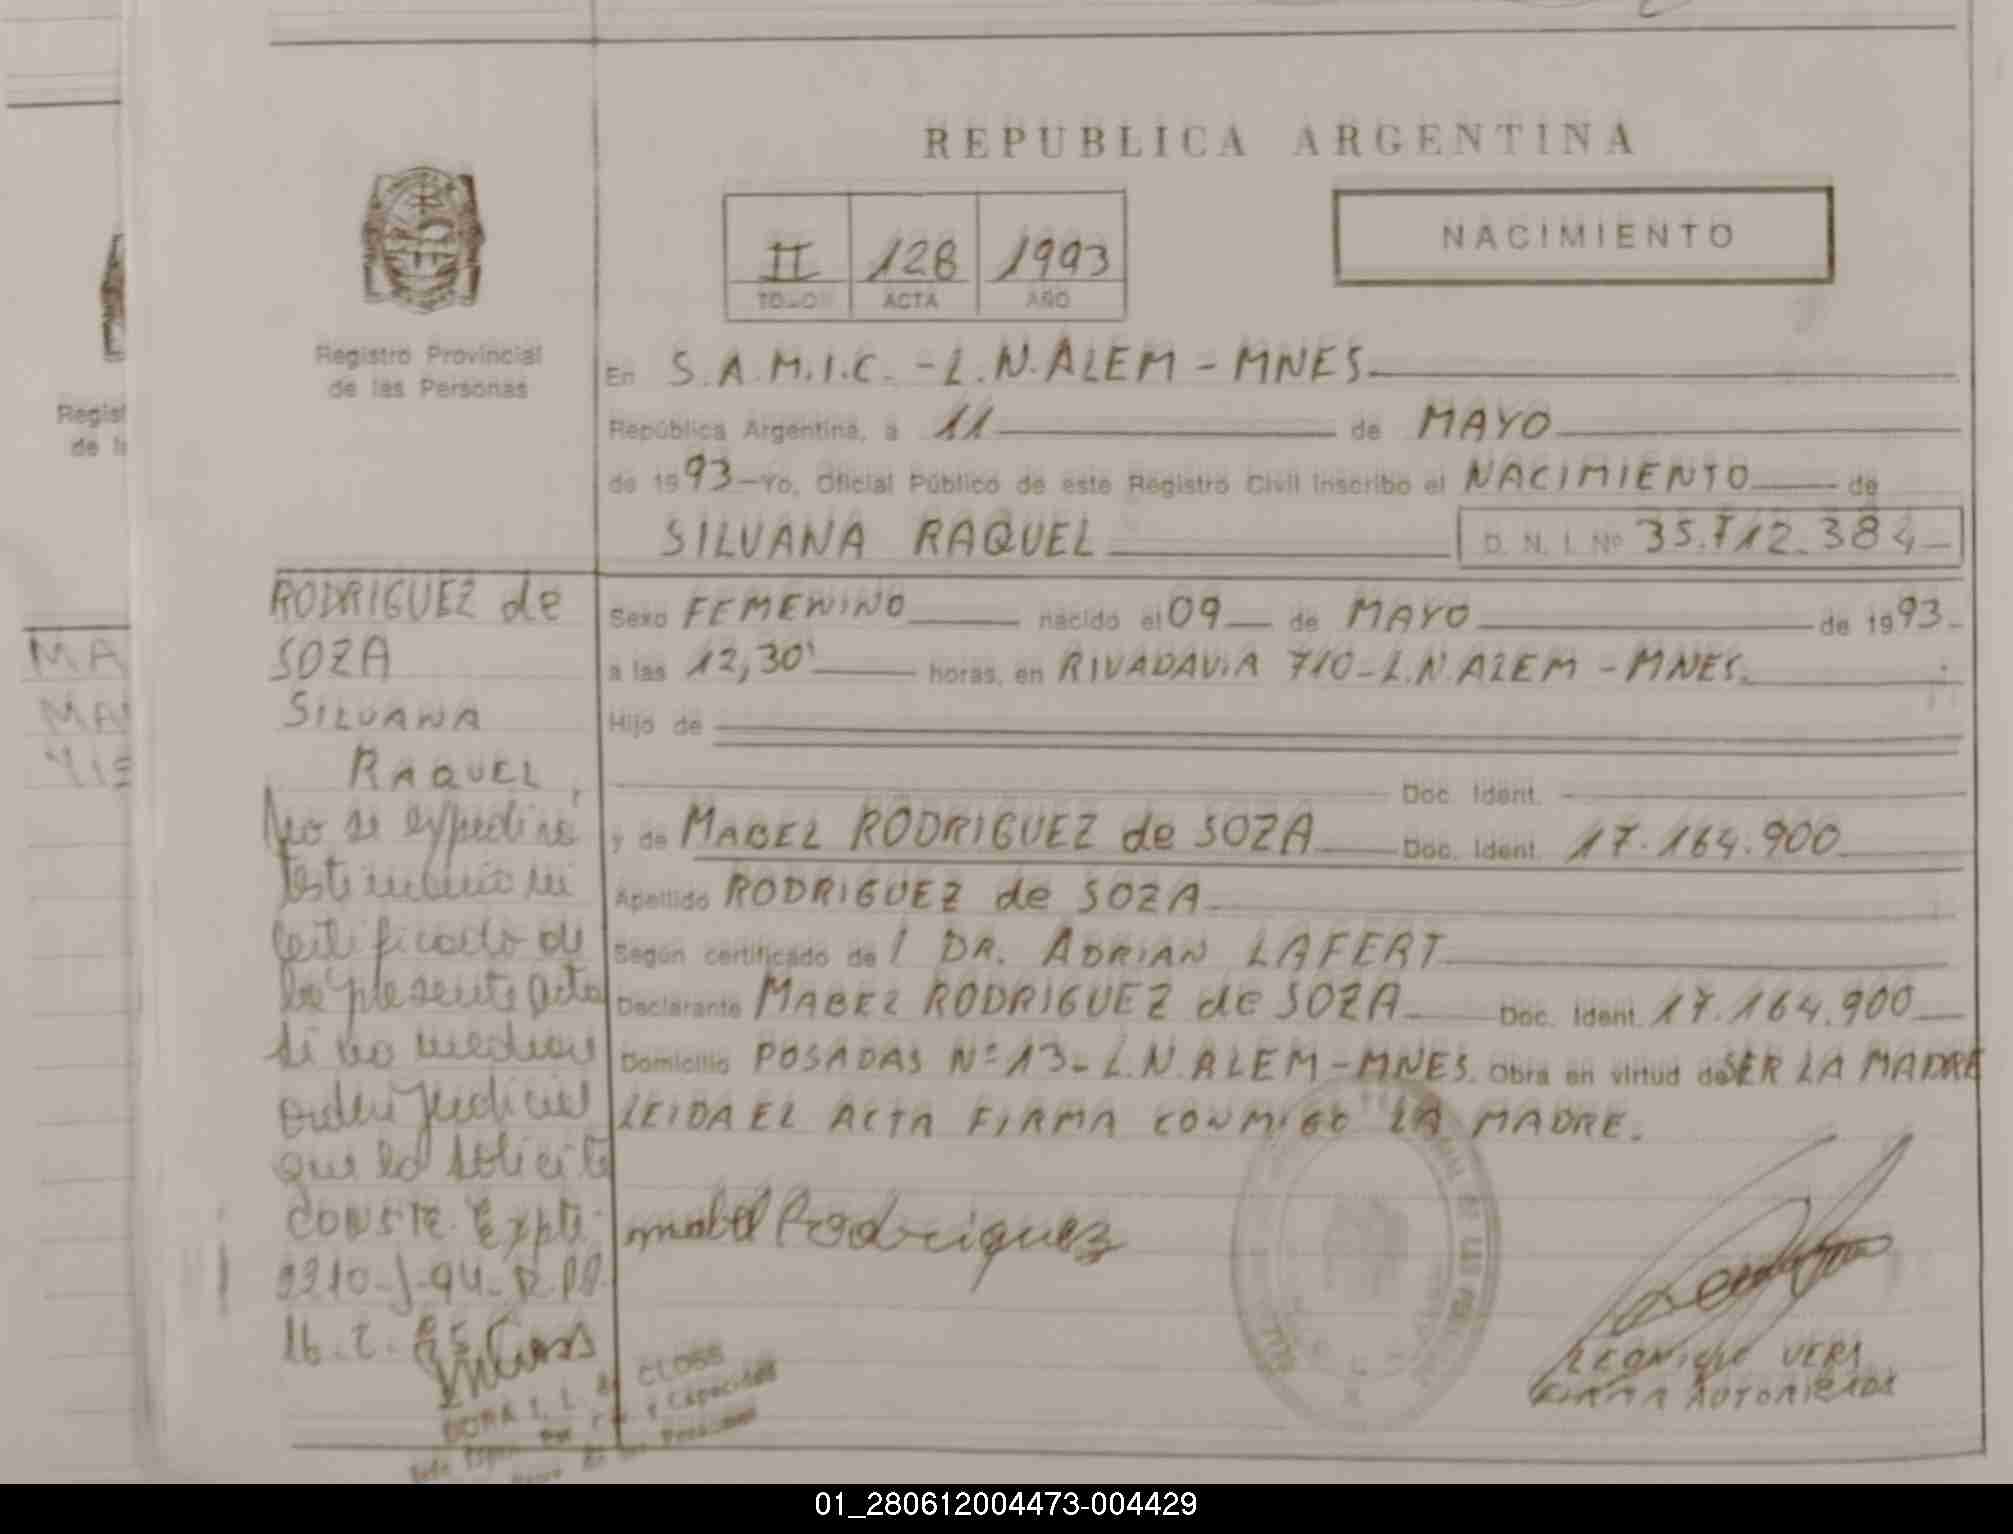 REPUBLICA ARGENTINA
NACIMIENTO
II 128 1993
TOMO ACTA AÑO
Registro Provincial
de las Personas
Regist
de l
En S.A.M.I.C. - L.N. ALEM - MNES
República Argentina, a 11 de MAYO
de 1993 - Yo, Oficial Público de este Registro Civil inscribo el NACIMIENTO de
SILVANA RAQUEL D. N. I. Nº 35.712.384
Sexo FEMENINO nacido el 09 de MAYO de 1993
a las 12,30' horas, en RIVADAVIA 710 - L.N. ALEM - MNES.
Hijo de
Doc. Ident.
y de MABEL RODRIGUEZ de SOZA Doc. Ident. 17.164.900
Apellido RODRIGUEZ de SOZA
Según certificado de l DR. ADRIAN LAFERT
Declarante MABEL RODRIGUEZ de SOZA Doc. Ident. 17.164.900
Domicilio POSADAS Nº 13 - L.N. ALEM - MNES. Obra en virtud de SER LA MADRE
LEIDA EL ACTA FIRMA CONMIGO LA MADRE.
mabel Rodriguez
VERA
FIRMA AUTORIZADA
RODRIGUEZ de
SOZA
SILVANA
RAQUEL
No se expedirá
testimonio ni
certificado de
la presente acta
si no mediare
orden judicial
que lo solicite
CONSTE. Expte.
16.
CLOSS
y Capacidad
MA
MA
01_280612004473-004429